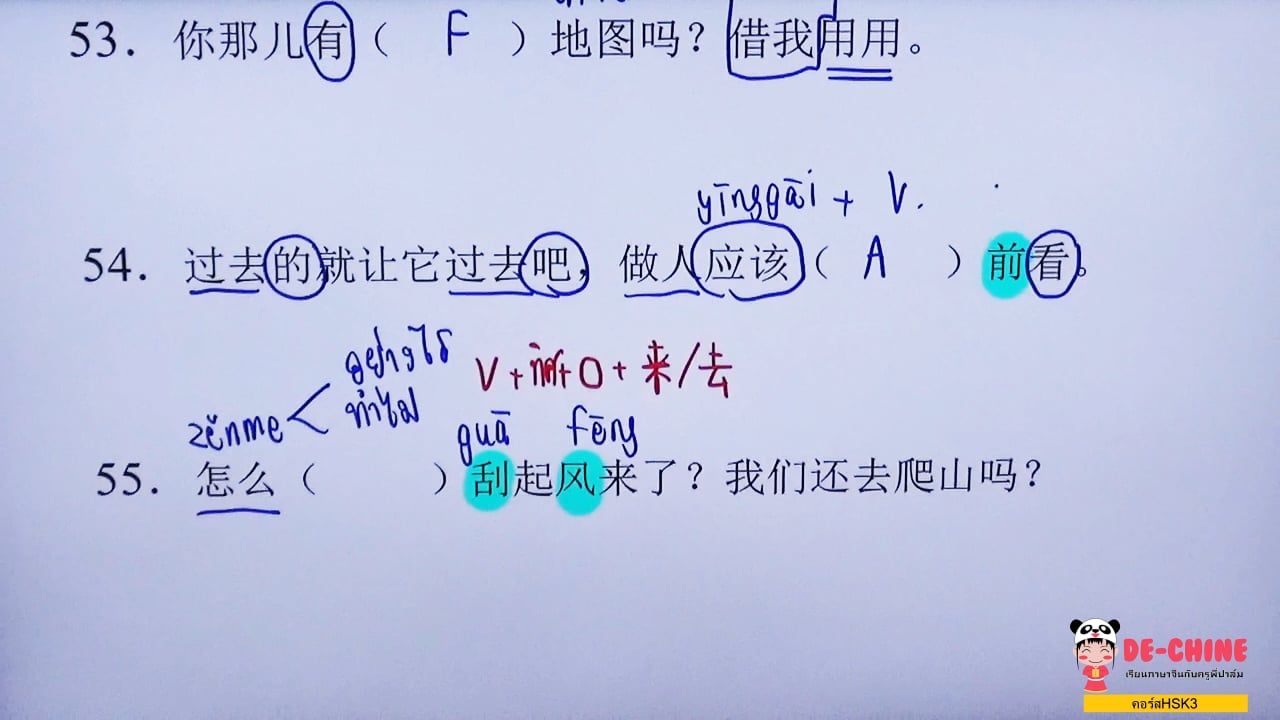 53. 你那儿有（ F ）地图吗？借我用用。
yīnggāi + V.
54. 过去的就让它过去吧，做人应该（ A ）前看。
อย่างไร
ทำไม
V + ทิศ + O + 来/去
zěnme
guā fēng
55. 怎么（ ）刮起风来了？我们还去爬山吗？
DE-CHINE
เรียนภาษาจีนกับครูพี่ปาล์ม
คอร์สHSK3